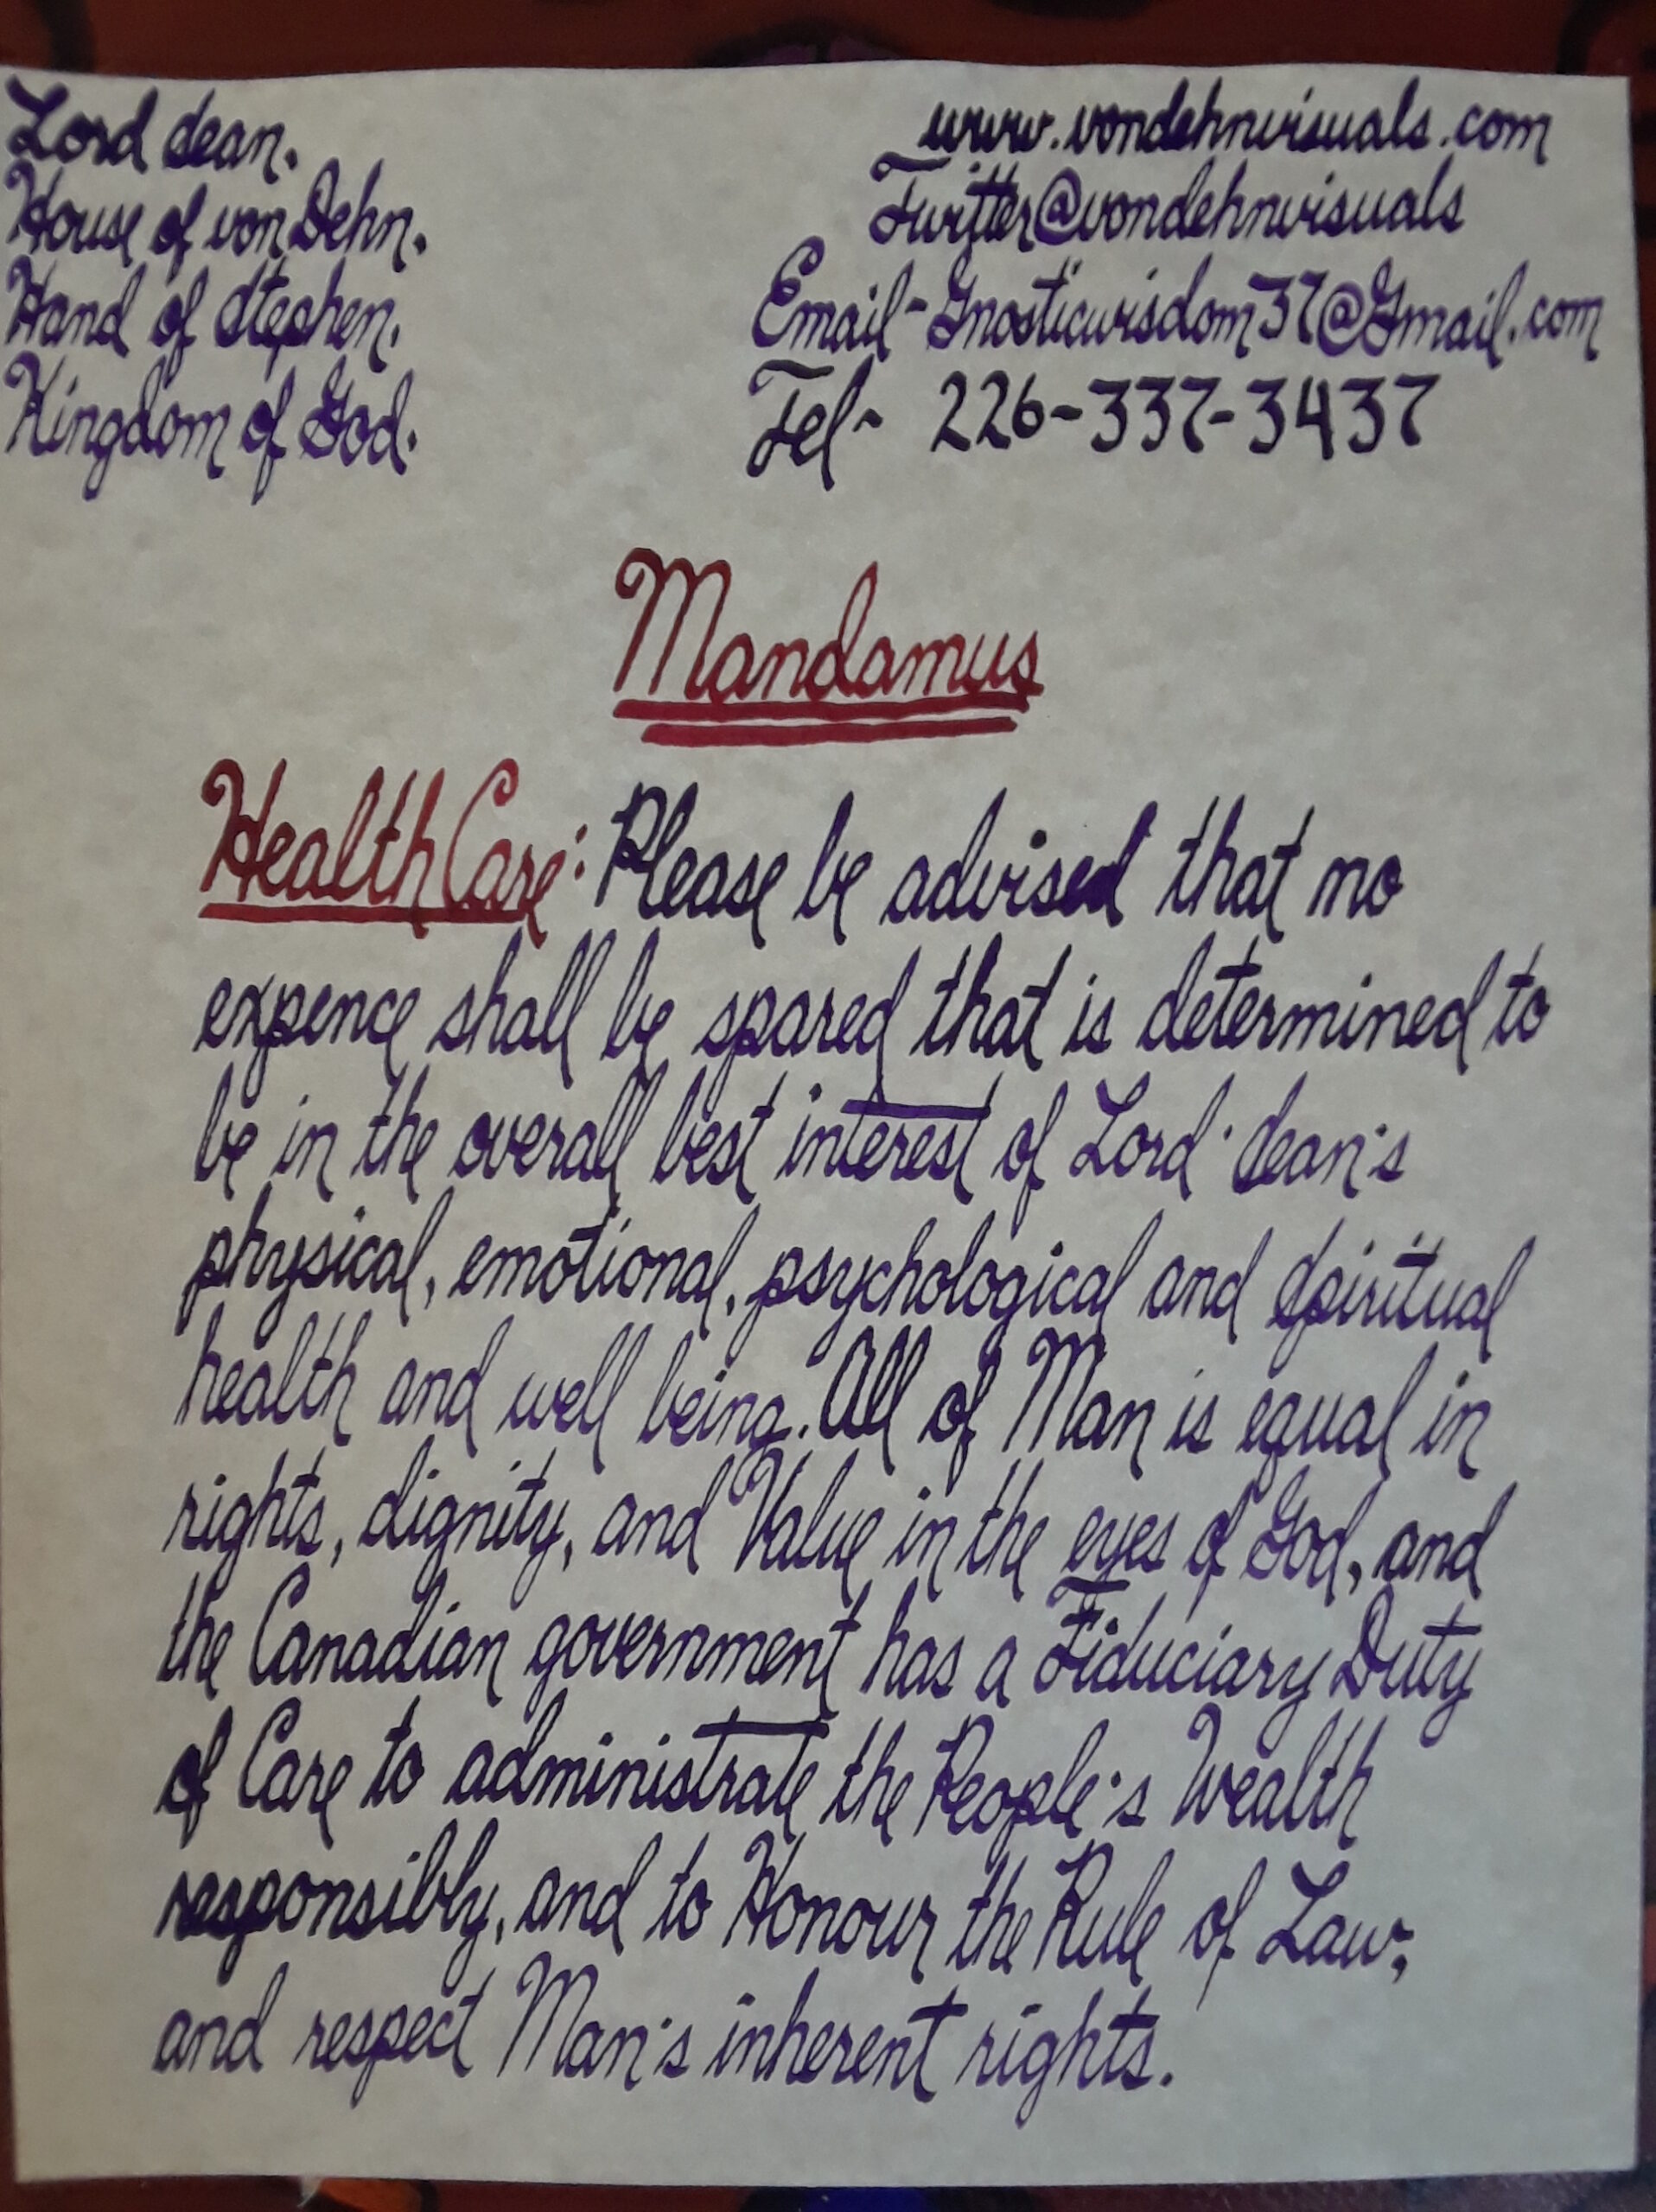 Lord dean.
House of von Dehn.
Hand of Stephen.
Kingdom of God.
www.vondehnvisuals.com
Twitter@vondehnvisuals
Email-Gnosticwisdom37@Gmail.com
Tel- 226-337-3437
Mandamus
Health Care: Please be advised that no
expence shall be spared that is determined to
be in the overall best interest of Lord·dean's
physical, emotional, psychological and Spiritual
health and well being. All of Man is equal in
rights, dignity, and Value in the eyes of God, and
the Canadian government has a Fiduciary Duty
of Care to administrate the People's Wealth
responsibly, and to Honour the Rule of Law;
and respect Man's inherent rights.